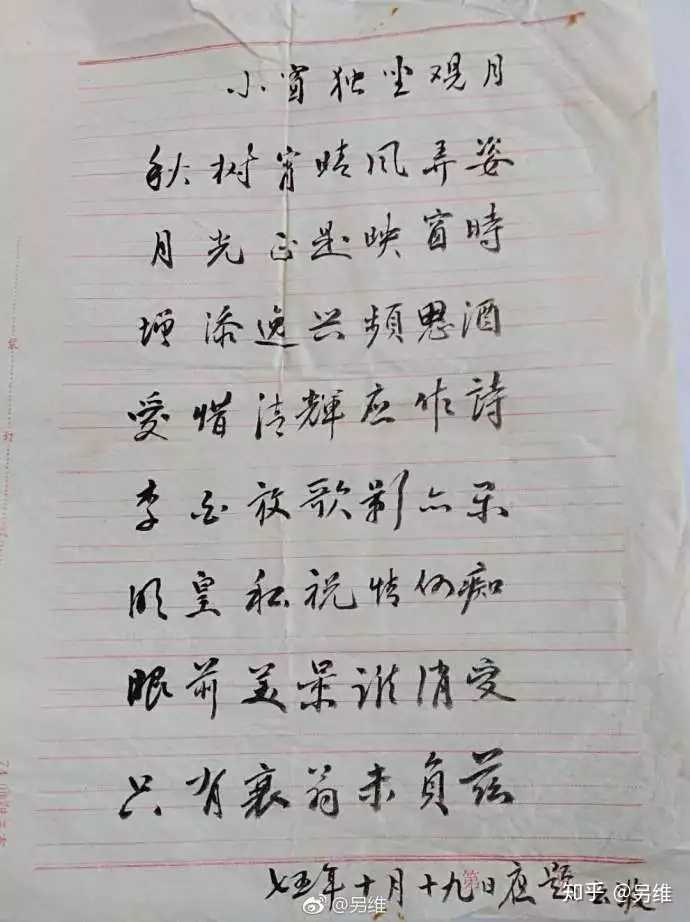 小窗独坐观月
秋树宵晴风弄姿
月光正是映窗時
增添逸兴频思酒
愛惜清輝应作詩
李白放歌影亦乐
明皇私祝情何痴
眼前美景谁消受
只有衰翁未負兹
七五年十月十九日应題
装
订
第
@另维
知乎 @另维